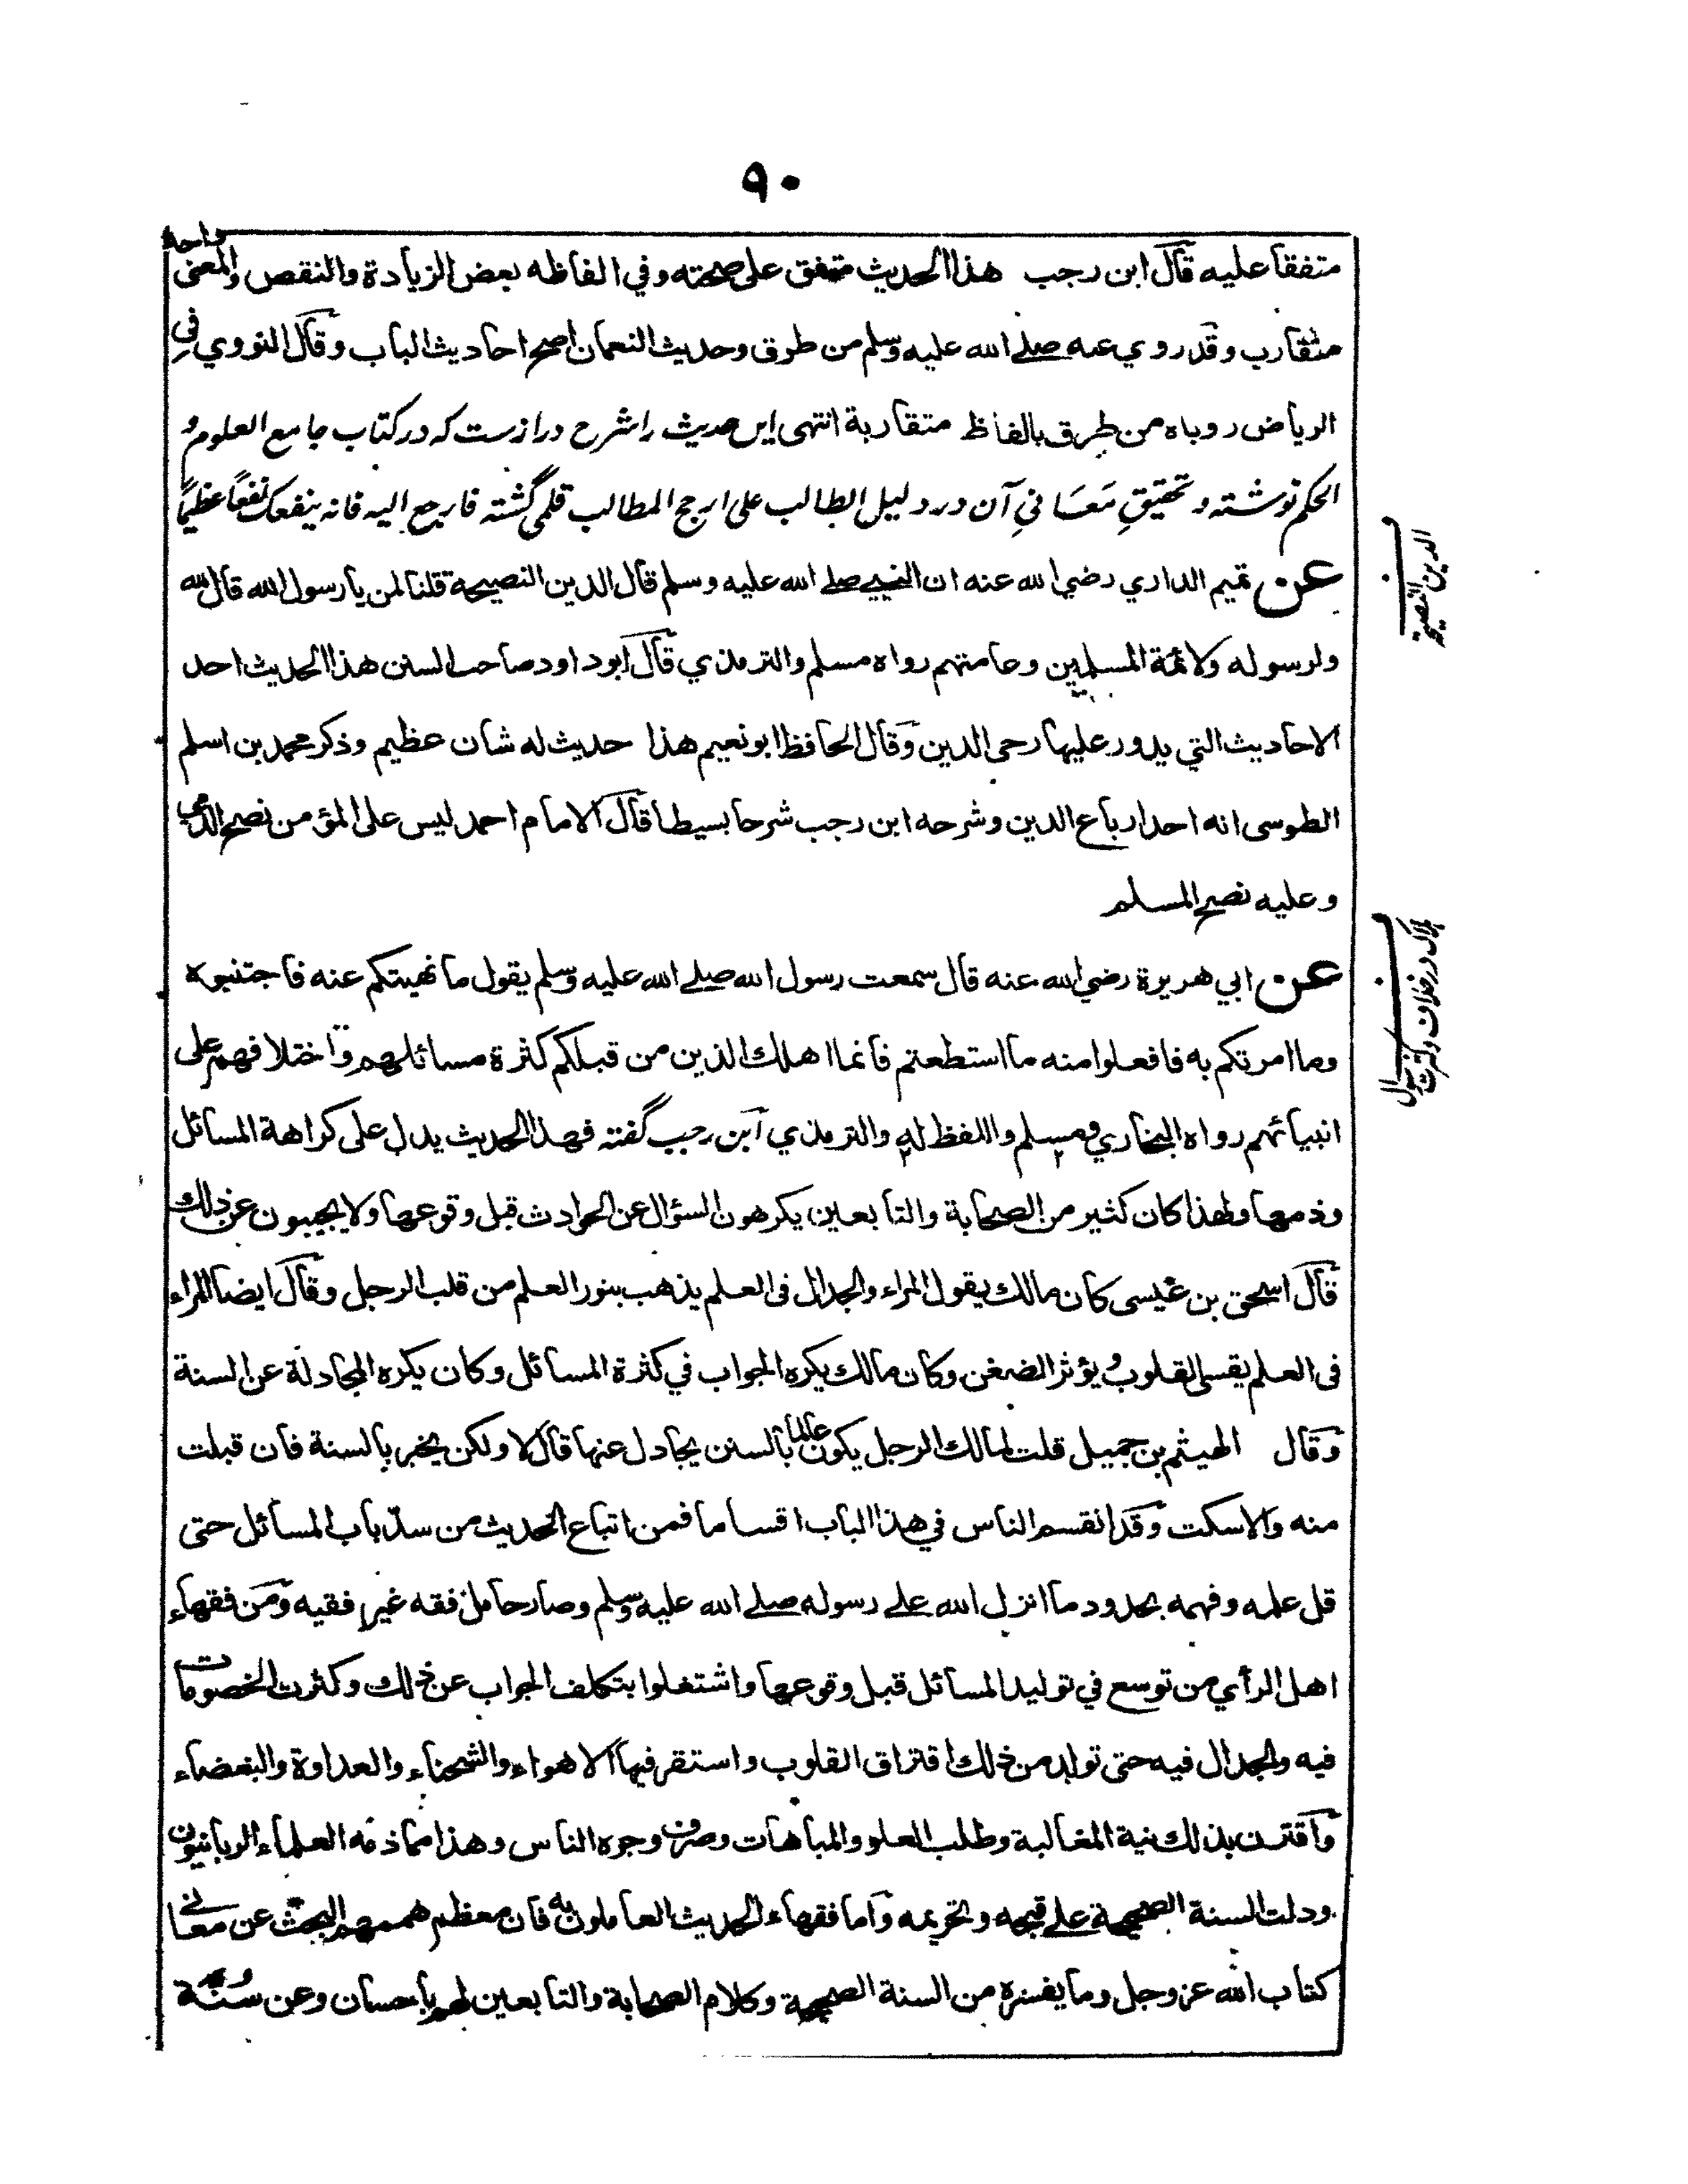 ٩٠
متفقا عليه قال ابن رجب هذا الحديث متفق على صحته وفي الفاظه بعض الزيادة والنقص والمعنى واحد
متقارب وقد روي عنه صلے الله عليه وسلم من طرق وحديث النعمان اصح احاديث الباب وقال النووي في
الرياض روياه من طرق بالفاظ متقاربة انتهى این حدیث را شرح درازست که در کتاب جامع العلوم و
الحکم نوشته و تحقیقِ مَعَانیِ آن در دلیل الطالب علی ارجح المطالب قلمی گشته فارجع الیه فانه ینفعک نفعًا عظیمًا
عن تميم الداري رضي الله عنه ان النبي صلے الله عليه وسلم قال الدين النصيحة قلنا لمن يا رسول الله قال لله
ولرسوله ولائمة المسلمين وعامتهم رواه مسلم والترمذي قال ابوداود صاحب السنن هذا الحديث احد
الاحاديث التي يدور عليها رحى الدين وقال الحافظ ابو نعيم هذا حديث له شان عظيم وذكر محمد بن اسلم
الطوسى انه احد ارباع الدين وشرحه ابن رجب شرحا بسيطا قال الامام احمد ليس على المؤمن نصح الذمي
وعليه نصح المسلم
عن ابي هريرة رضي الله عنه قال سمعت رسول الله صلے الله عليه وسلم يقول ما نهيتكم عنه فاجتنبوه
وما امرتكم به فافعلوا منه ما استطعتم فانما اهلك الذين من قبلكم كثرة مسائلهم واختلافهم على
انبيائهم رواه البخاري ومسلم واللفظ له والترمذي ابن رجب گفته فهذا الحديث يدل على كراهة المسائل
وذمها ولهذا كان كثير من الصحابة والتابعين يكرهون السؤال عن الحوادث قبل وقوعها ولا يجيبون عن ذلك
قال اسحق بن عيسى كان مالك يقول المراء والجدال فى العلم يذهب بنور العلم من قلب الرجل وقال ايضا المراء
فى العلم يقسى القلوب ويؤثر الضغن وكان مالك يكره الجواب في كثرة المسائل وكان يكره المجادلة عن السنة
وقال الهيثم بن جميل قلت لمالك الرجل يكون عالما بالسنن يجادل عنها قال لا ولكن يخبر بالسنة فان قبلت
منه والا سكت وقد انقسم الناس في هذا الباب اقساما فمن اتباع الحديث من سدّ باب المسائل حتى
قل علمه وفهمه بحدود ما انزل الله على رسوله صلے الله عليه وسلم وصار حامل فقه غير فقيه ومن فقهاء
اهل الرأي من توسع في توليد المسائل قبل وقوعها واشتغلوا بتكلف الجواب عن ذلك وكثرت الخصومات
فيه والجدال فيه حتى تولد من ذلك افتراق القلوب واستقر فيها الاهواء والشحناء والعداوة والبغضاء
واقترن بذلك نية المغالبة وطلب العلو والمباهات وصرف وجوه الناس وهذا مما ذمه العلماء الربانيون
ودلت السنة الصحيحة على قبحه وتحريمه واما فقهاء الحديث العاملون به فان معظم هممهم البحث عن معاني
كتاب الله عز وجل وما يفسره من السنة الصحيحة وكلام الصحابة والتابعين لهم باحسان وعن سُنَّة
الدين النصيحة
ہلاک در خلاف و کثرت سوال